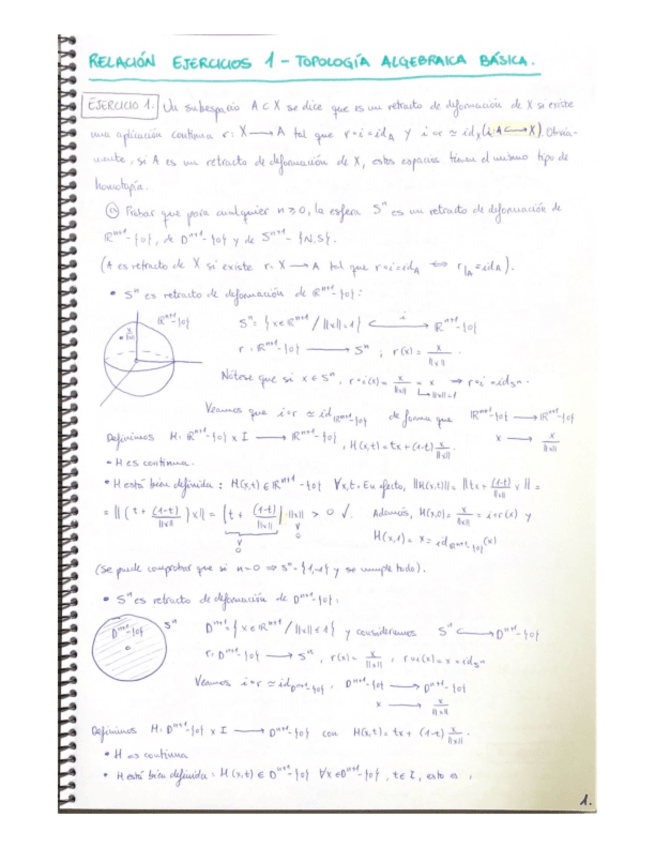 RELACIÓN EJERCICIOS 1 - TOPOLOGÍA ALGEBRAICA BÁSICA.
EJERCICIO 1. Un subespacio A ⊂ X se dice que es un retracto de deformación de X si existe
una aplicación continua r: X ⟶ A tal que r∘i = id_A y i∘r ≃ id_X (i: A ⟶ X). Obvia-
mente, si A es un retracto de deformación de X, estos espacios tienen el mismo tipo de
homotopía.
ⓐ Probar que para cualquier n ≥ 0, la esfera Sⁿ es un retracto de deformación de
ℝⁿ⁺¹-{0}, de Dⁿ⁺¹-{0} y de Sⁿ⁺¹-{N,S}.
(A es retracto de X si existe r: X ⟶ A tal que r∘i = id_A ⟺ r|_A = id_A).
• Sⁿ es retracto de deformación de ℝⁿ⁺¹-{0}:
ℝⁿ⁺¹-{0}
x/||x||
Sⁿ = {x∈ℝⁿ⁺¹ / ||x|| = 1} ⟶ i ℝⁿ⁺¹-{0}
r: ℝⁿ⁺¹-{0} ⟶ Sⁿ ; r(x) = x/||x|| .
Nótese que si x ∈ Sⁿ, r∘i(x) = x/||x|| = x ⟹ r∘i = id_Sⁿ.
||x||=1
Veamos que i∘r ≃ id_ℝⁿ⁺¹-{0} de forma que ℝⁿ⁺¹-{0} ⟶ ℝⁿ⁺¹-{0}
x ⟶ x/||x||
Definimos H: ℝⁿ⁺¹-{0} x I ⟶ ℝⁿ⁺¹-{0}, H(x,t) = tx + (1-t) x/||x||.
- H es continua.
• H está bien definida: H(x,t) ∈ ℝⁿ⁺¹-{0} ∀x,t. En efecto, ||H(x,t)|| = ||tx + (1-t)/||x|| x|| =
= ||(t + (1-t)/||x||) x|| = (t + (1-t)/||x||) · ||x|| > 0 ✓. Además, H(x,0) = x/||x|| = i∘r(x) y
H(x,1) = x = id_ℝⁿ⁺¹-{0}(x)
(Se puede comprobar que si n=0 ⟹ S⁰ = {1,-1} y se cumple todo).
• Sⁿ es retracto de deformación de Dⁿ⁺¹-{0}:
Dⁿ⁺¹-{0} Sⁿ
Dⁿ⁺¹ = {x∈ℝⁿ⁺¹ / ||x|| ≤ 1} y consideramos Sⁿ ⟶ Dⁿ⁺¹-{0}
r: Dⁿ⁺¹-{0} ⟶ Sⁿ, r(x) = x/||x||, r∘i(x) = x = id_Sⁿ
Veamos i∘r ≃ id_Dⁿ⁺¹-{0}, Dⁿ⁺¹-{0} ⟶ Dⁿ⁺¹-{0}
x ⟶ x/||x||
Definimos H: Dⁿ⁺¹-{0} x I ⟶ Dⁿ⁺¹-{0} con H(x,t) = tx + (1-t) x/||x||.
• H es continua
• H está bien definida: H(x,t) ∈ Dⁿ⁺¹-{0} ∀x∈Dⁿ⁺¹-{0}, t∈I, esto es,
1.